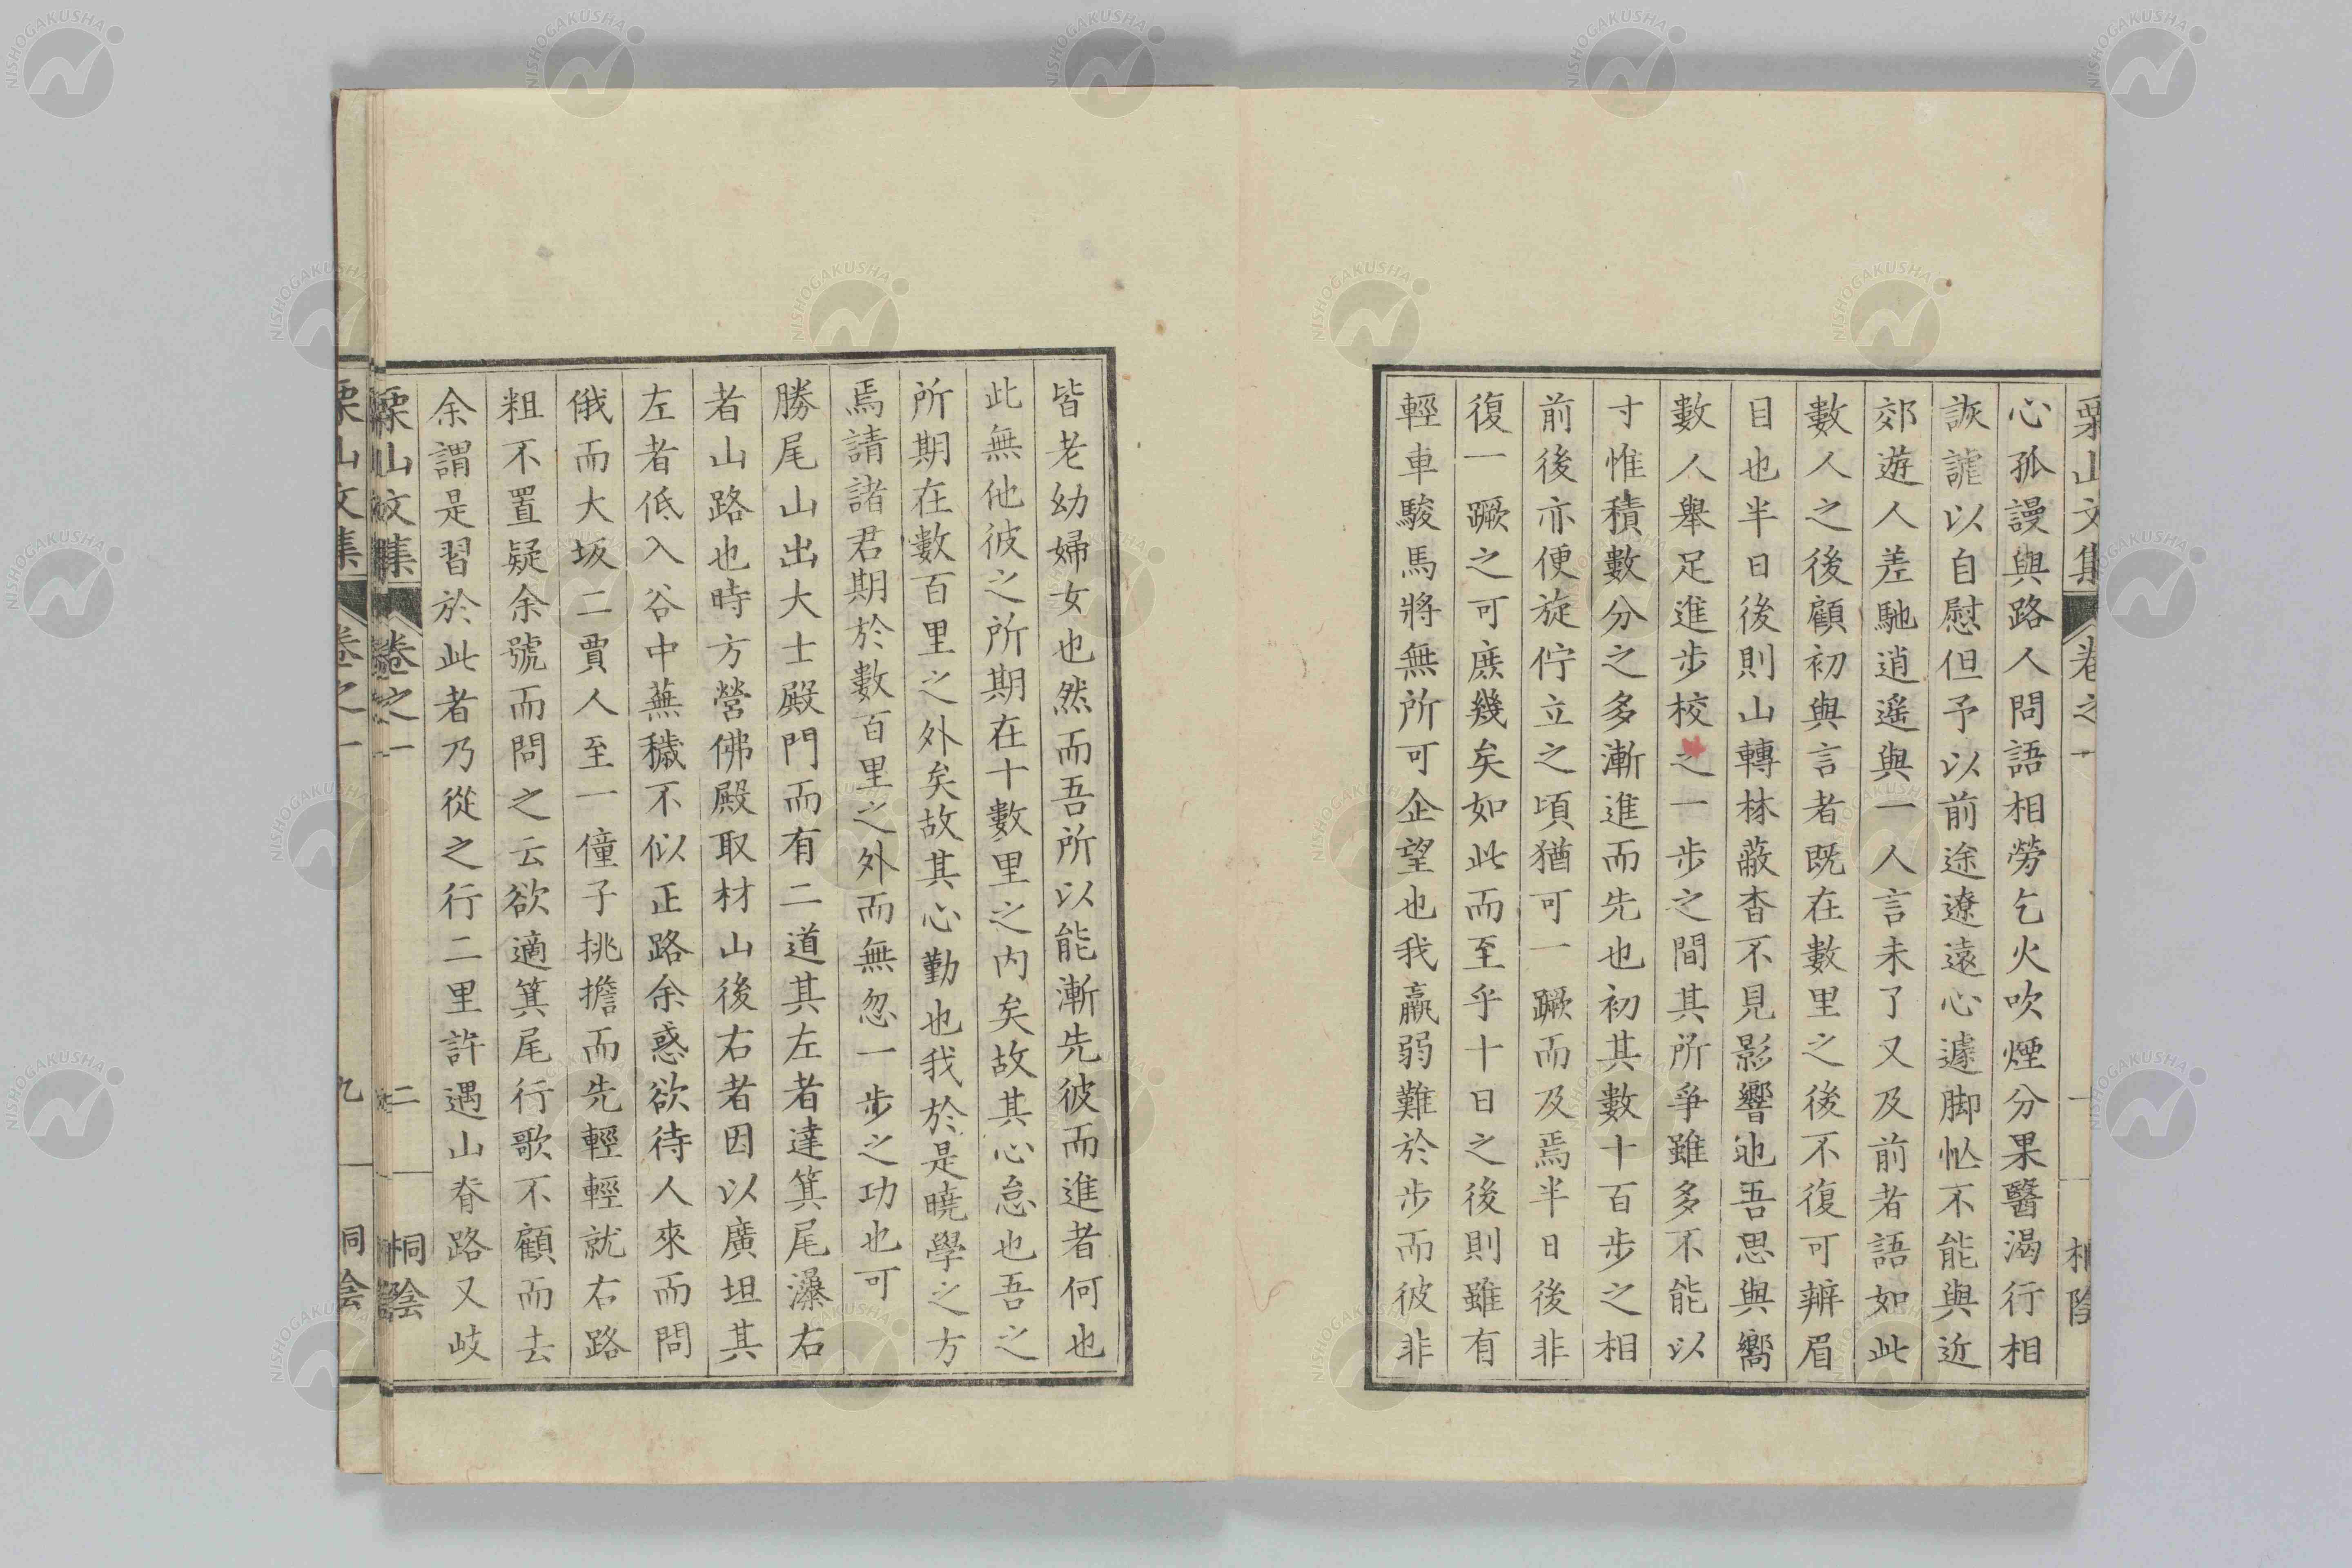 栗山文集 卷之一 一 桐陰
心孤謾與路人問語相勞乞火吹煙分果醫渴行相
詼謔以自慰但予以前途遼遠心遽脚忙不能與近
郊遊人差馳逍遙與一人言未了又及前者語如此
數人之後顧初與言者既在數里之後不復可辨眉
目也半日後則山轉林蔽杳不見影響也吾思與嚮
數人舉足進步校之一步之間其所爭雖多不能以
寸惟積數分之多漸進而先也初其數十百步之相
前後亦便旋佇立之頃猶可一蹶而及焉半日後非
復一蹶之可庶幾矣如此而至乎十日之後則雖有
輕車駿馬將無所可企望也我羸弱難於步而彼非
皆老幼婦女也然而吾所以能漸先彼而進者何也
此無他彼之所期在十數里之內矣故其心怠也吾之
所期在數百里之外矣故其心勤也我於是曉學之方
焉請諸君期於數百里之外而無忽一步之功也可
勝尾山出大士殿門而有二道其左者達箕尾瀑右
者山路也時方營佛殿取材山後右者因以廣坦其
左者低入谷中蕪穢不似正路余惑欲待人來而問
俄而大坂二賈人至一僮子挑擔而先輕輕就右路
粗不置疑余號而問之云欲適箕尾行歌不顧而去
余謂是習於此者乃從之行二里許遇山脊路又岐
栗山文集 卷之一 二 桐陰
栗山文集 卷之一 九 桐陰
NISHOGAKUSHA